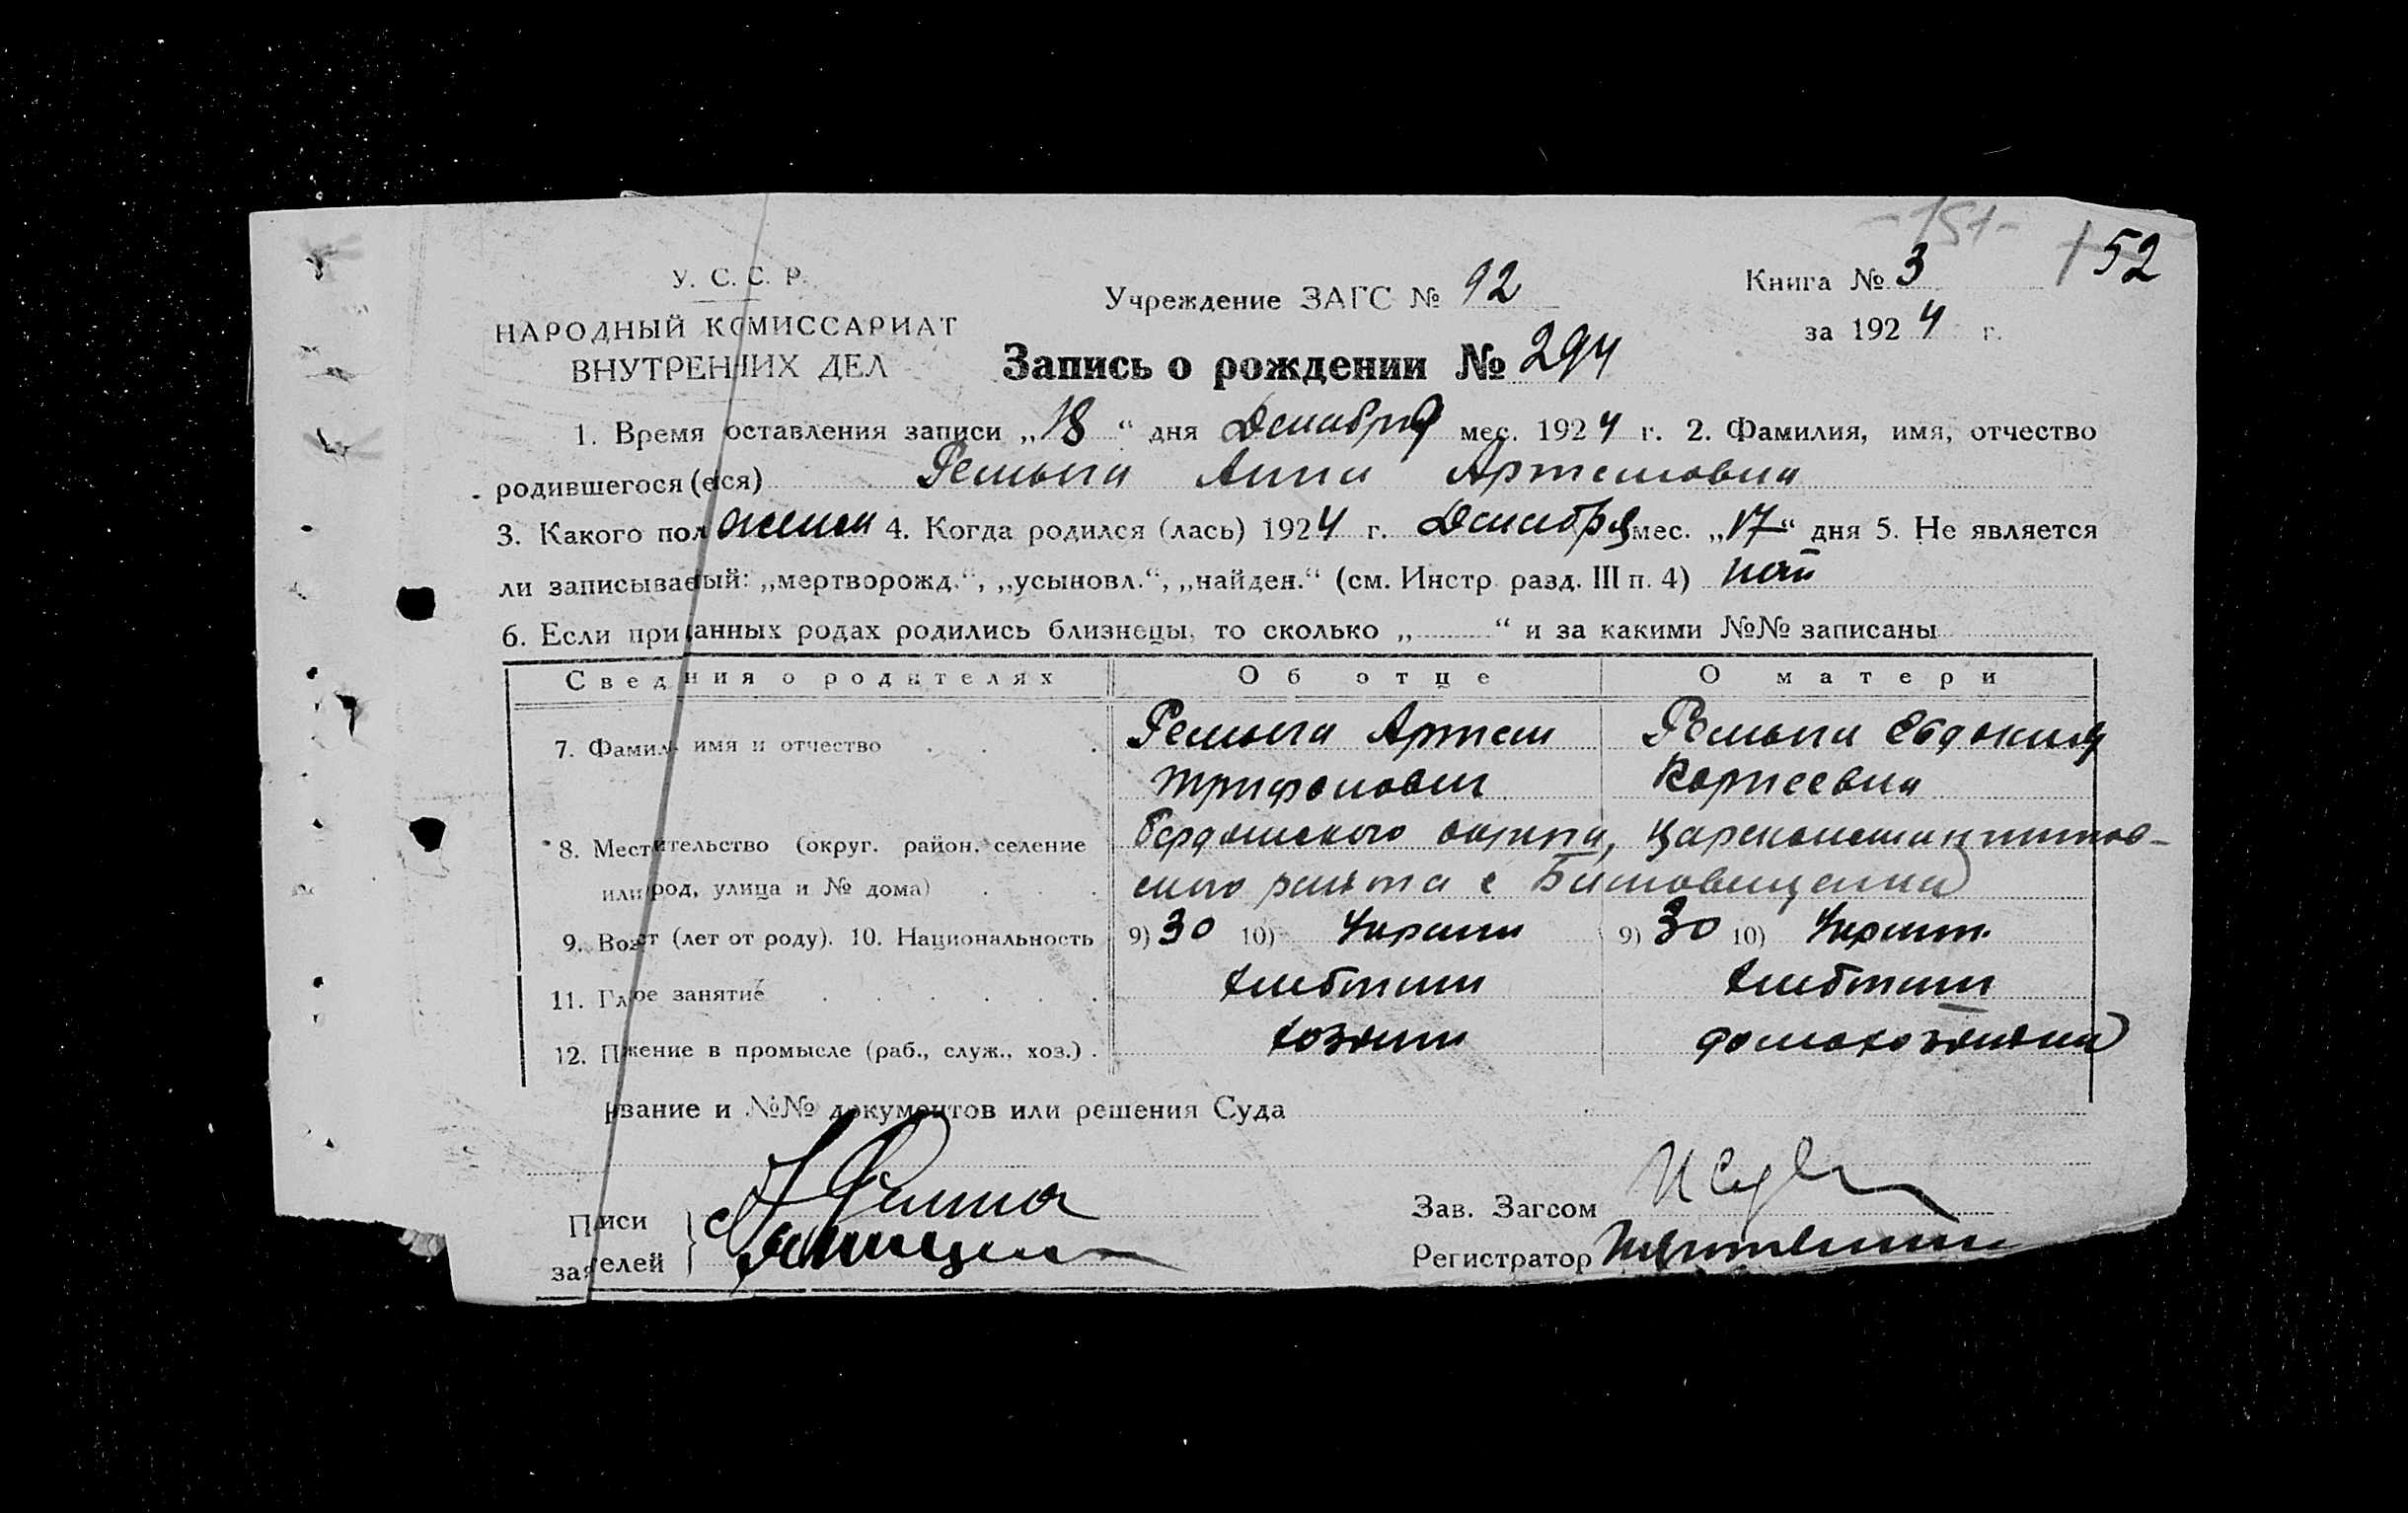 -151-
152
У. С. С. Р.
НАРОДНЫЙ КОМИССАРИАТ
ВНУТРЕННИХ ДЕЛ
Учреждение ЗАГС № 92
Книга № 3
за 1924 г.
Запись о рождении № 294
1. Время оставления записи „18“ дня Декабря мес. 1924 г. 2. Фамилия, имя, отчество
родившегося (еся) Анна Артемовна
3. Какого пол женск 4. Когда родился (лась) 1924 г. Декабря мес. „17“ дня 5. Не является
ли записываемый: „мертворожд.“, „усыновл.“, „найден.“ (см. Инстр. разд. III п. 4)
6. Если при данных родах родились близнецы, то сколько „ “ и за какими №№ записаны
Сведния о родителях Об отце О матери
7. Фамил имя и отчество Артем Евдокия
Трифонович Корнеевна
8. Местительство (округ. район, селение Бердянского округа, Цареконстантинов-
или род, улица и № дома) ского района с
9. Возст (лет от роду). 10. Национальность 9) 30 10) Украин 9) 30 10) Украин.
11. Глное занятие хлебопаш хлебопаш
12. Пжение в промысле (раб., служ., хоз.) . хозяин домохозяйка
вание и №№ документов или решения Суда
Писи
заявелей }
Зав. Загсом
Регистратор